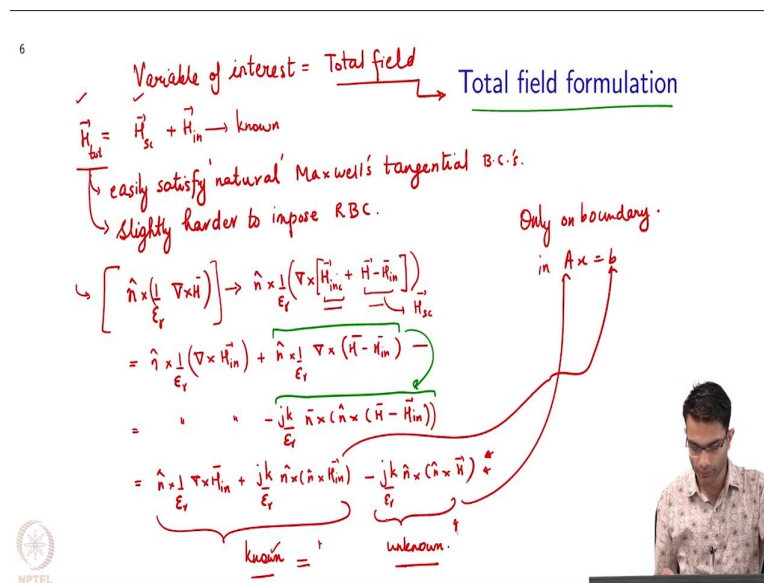 6
Variable of interest = Total field
Total field formulation
H⃗tot = H⃗sc + H⃗in → known
easily satisfy 'natural' Maxwell's tangential B.C's.
slightly harder to impose RBC.
Only on boundary.
in Ax = b
[ n̂ × (1/εr ∇×H̄) ] → n̂ × 1/εr (∇×[H⃗inc + H⃗-H⃗in])
H⃗sc
= n̂ × 1/εr (∇×H⃗in) + n̂ × 1/εr ∇×(H̄ - H̄in) —
= " " - jk/εr n̄×(n̂×(H̄ - H⃗in))
= n̂ × 1/εr ∇×H̄in + jk/εr n̂×(n̂×H⃗in) - jk/εr n̂×(n̂×H⃗)
known =
unknown.
NPTEL